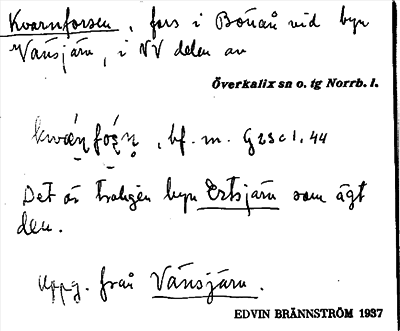 Kvarnforsen, fors i Bönån vid byn
Vänsjärn, i NV delen av
Överkalix sn o. tg Norrb. l.
, bf. m. G 23 c 1, 44
Det är troligen byn Ertsjärn som ägt
den.
Uppg. från Vänsjärn.
EDVIN BRÄNNSTRÖM 1937